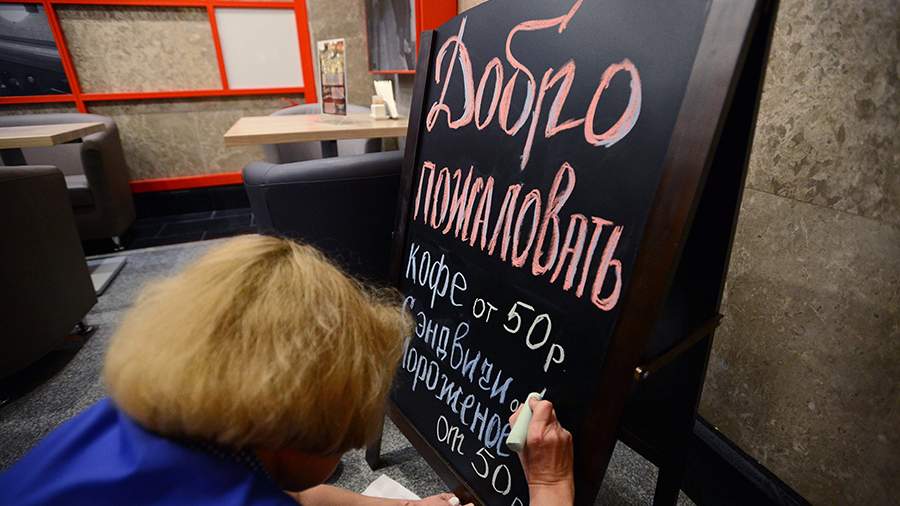 Добро
пожаловать
кофе от 50р
Сэндвичи о
Мороженое
от 50